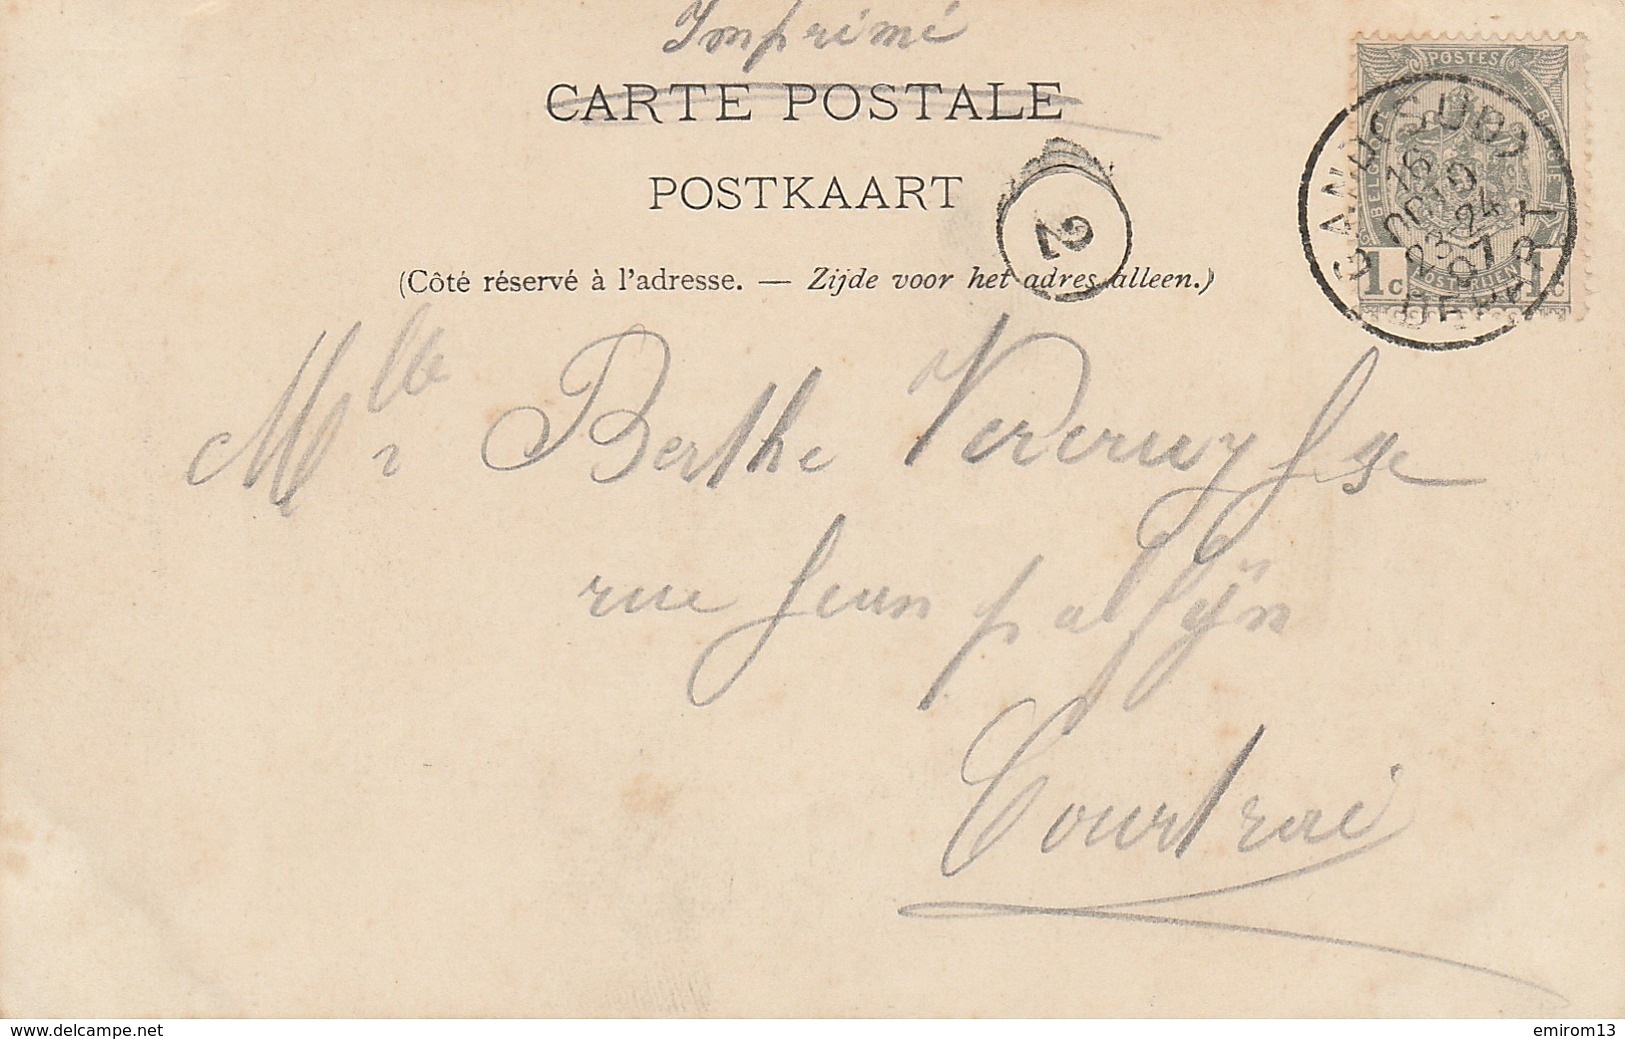 Imprimé
CARTE POSTALE
POSTKAART
(Côté réservé à l'adresse. — Zijde voor het adres alleen.)
POSTES
BELGIQUE
BELGIE
POSTERIJEN
1c 1c
GAND (SUD)
DEPART
2
Mlle Berthe
rue Jean palfijn
Courtrai
www.delcampe.net
emirom13